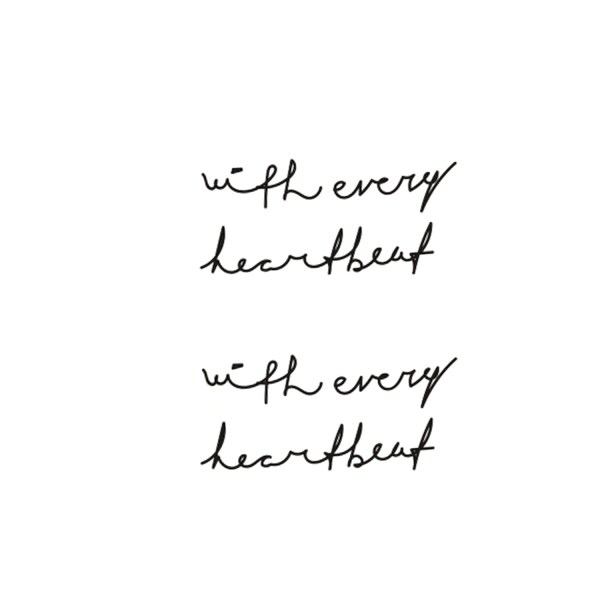 with every
heartbeat
with every
heartbeat